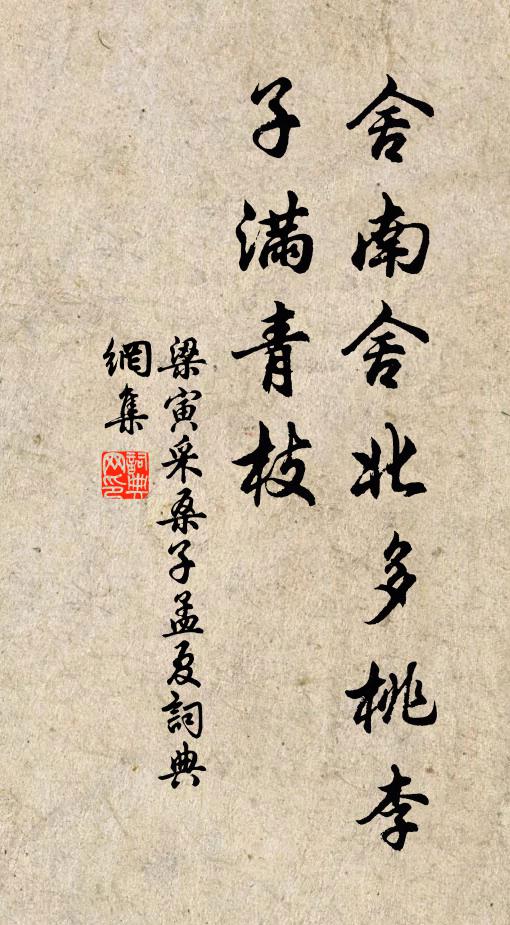 舍南舍北多桃李
子滿青枝
梁寅采桑子孟夏詞典
網集
詞典
网印